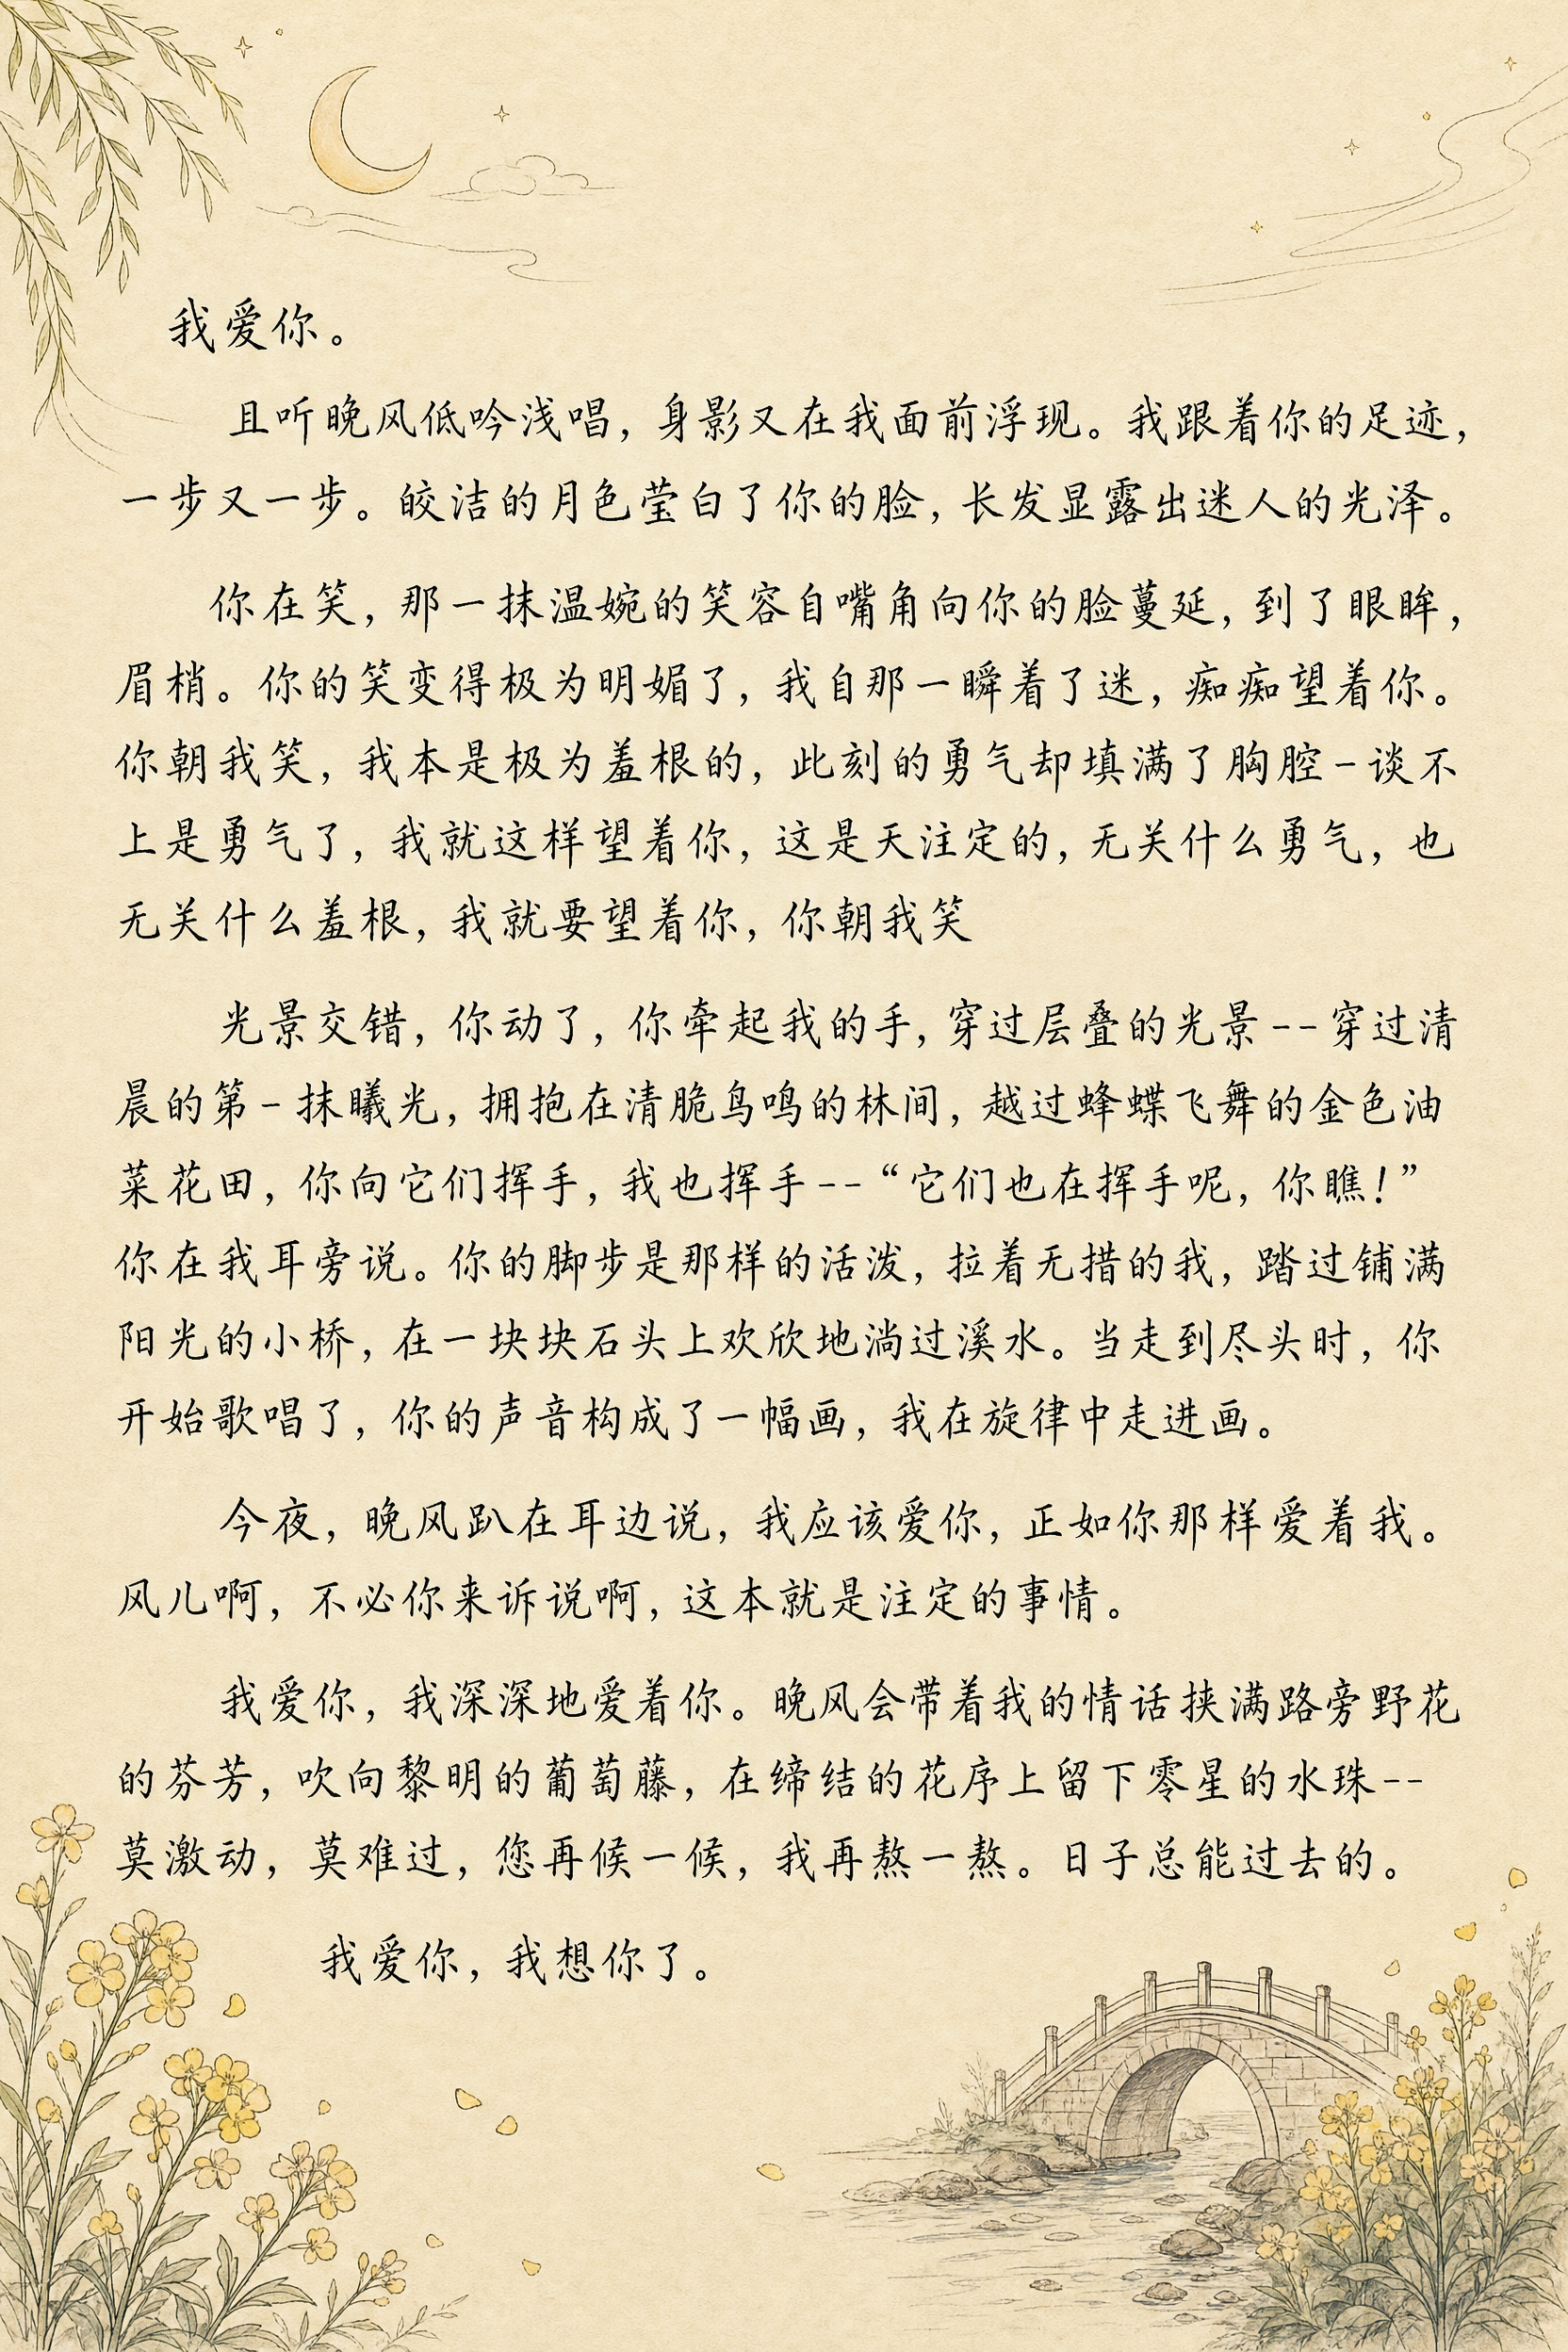 我爱你。
且听晚风低吟浅唱，身影又在我面前浮现。我跟着你的足迹，
一步又一步。皎洁的月色莹白了你的脸，长发显露出迷人的光泽。
你在笑，那一抹温婉的笑容自嘴角向你的脸蔓延，到了眼眸，
眉梢。你的笑变得极为明媚了，我自那一瞬着了迷，痴痴望着你。
你朝我笑，我本是极为羞根的，此刻的勇气却填满了胸腔-谈不
上是勇气了，我就这样望着你，这是天注定的，无关什么勇气，也
无关什么羞根，我就要望着你，你朝我笑
光景交错，你动了，你牵起我的手，穿过层叠的光景--穿过清
晨的第-抹曦光，拥抱在清脆鸟鸣的林间，越过蜂蝶飞舞的金色油
菜花田，你向它们挥手，我也挥手--“它们也在挥手呢，你瞧！”
你在我耳旁说。你的脚步是那样的活泼，拉着无措的我，踏过铺满
阳光的小桥，在一块块石头上欢欣地淌过溪水。当走到尽头时，你
开始歌唱了，你的声音构成了一幅画，我在旋律中走进画。
今夜，晚风趴在耳边说，我应该爱你，正如你那样爱着我。
风儿啊，不必你来诉说啊，这本就是注定的事情。
我爱你，我深深地爱着你。晚风会带着我的情话挟满路旁野花
的芬芳，吹向黎明的葡萄藤，在缔结的花序上留下零星的水珠--
莫激动，莫难过，您再候一候，我再熬一熬。日子总能过去的。
我爱你，我想你了。